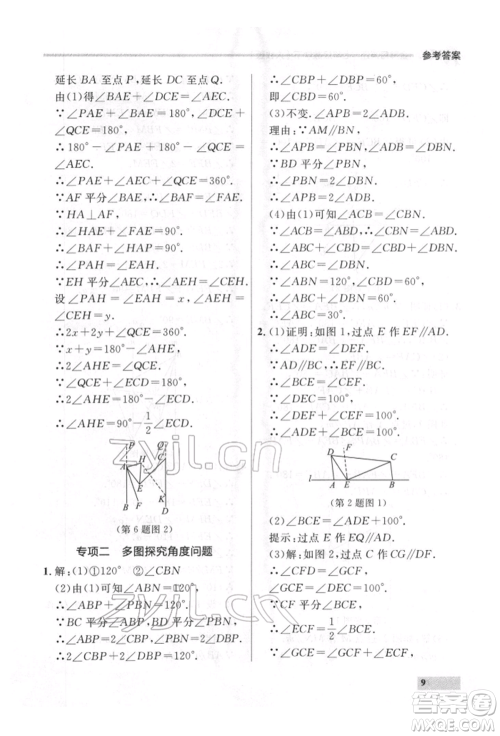 参考答案
延长 BA 至点 P，延长 DC 至点 Q.
由(1)得∠BAE+∠QCE=∠AEC.
∵∠PAE+∠BAE=180°，∠ECD+
∠QCE=180°，
∴180°-∠PAE+180°-∠ECD=
∠AEC.
∴∠PAE+∠AEC+∠ECD=360°.
∵AF平分∠BAE，∴∠BAF=∠EAF.
∵HA⊥AF，
∴∠HAE+∠FAE=90°.
∴∠BAF+∠PAH=90°.
∴∠PAH=∠HAE.
∵EH平分∠AEC，∴∠AEH=∠CEH.
设∠PAH=∠EAH=x，∠AEH=
∠CEH=y.
∴2x+2y+∠ECD=360°.
∵x+y=180°-∠AHE，
∴2(180°-∠AHE)+∠ECD=360°.
∴2∠AHE=∠ECD.
∴∠AHE=90°-1/2∠ECD.
(第6题图2)
专项二 多图探究角度问题
1. 解：(1)①120° ②∠CBN
(2)由(1)可知∠ABN=120°，
∴∠ABP+∠PBN=120°.
∵BC平分∠ABP，BD平分∠PBN，
∴∠ABP=2∠CBP，∠PBN=2∠DBP.
∴2∠CBP+2∠DBP=120°.
∴∠CBP+∠DBP=60°.
∴∠CBD=60°.
(3)不变. ∠APB=2∠ADB.
理由：∵AM∥BN，
∴∠APB=∠PBN，∠ADB=∠DBN.
∵BD平分∠PBN，
∴∠PBN=2∠DBN.
∴∠APB=2∠ADB.
(4)由(1)可知∠ACB=∠CBN.
∵∠ACB=∠ABD，
∴∠CBN=∠ABD.
∴∠ABC+∠CBD=∠CBD+∠DBN.
∴∠ABC=∠DBN.
∵∠ABN=120°，∠CBD=60°，
∴∠ABC+∠DBN=60°.
∴∠ABC=30°.
2. (1)证明：如图1，过点E作EF∥AD.
∴∠ADE=∠DEF.
∵AD∥BC，∴EF∥BC.
∴∠BCE=∠CEF.
∵∠DEC=100°，
∴∠DEF+∠CEF=100°.
∴∠ADE+∠BCE=100°.
(第2题图1)
(2)∠BCE=∠ADE+100°.
提示：过点E作EQ∥AD.
(3)解：如图2，过点C作CG∥DF.
∴∠CFD=∠FCG.
∵∠ADE+∠BCE=100°，
∴∠BCE=100°-∠ADE.
∵CF平分∠BCE，
∴∠ECF=1/2∠BCE.
∴∠ECF=50°-1/2∠ADE.
9
zyjl.cn
zyjl.cn